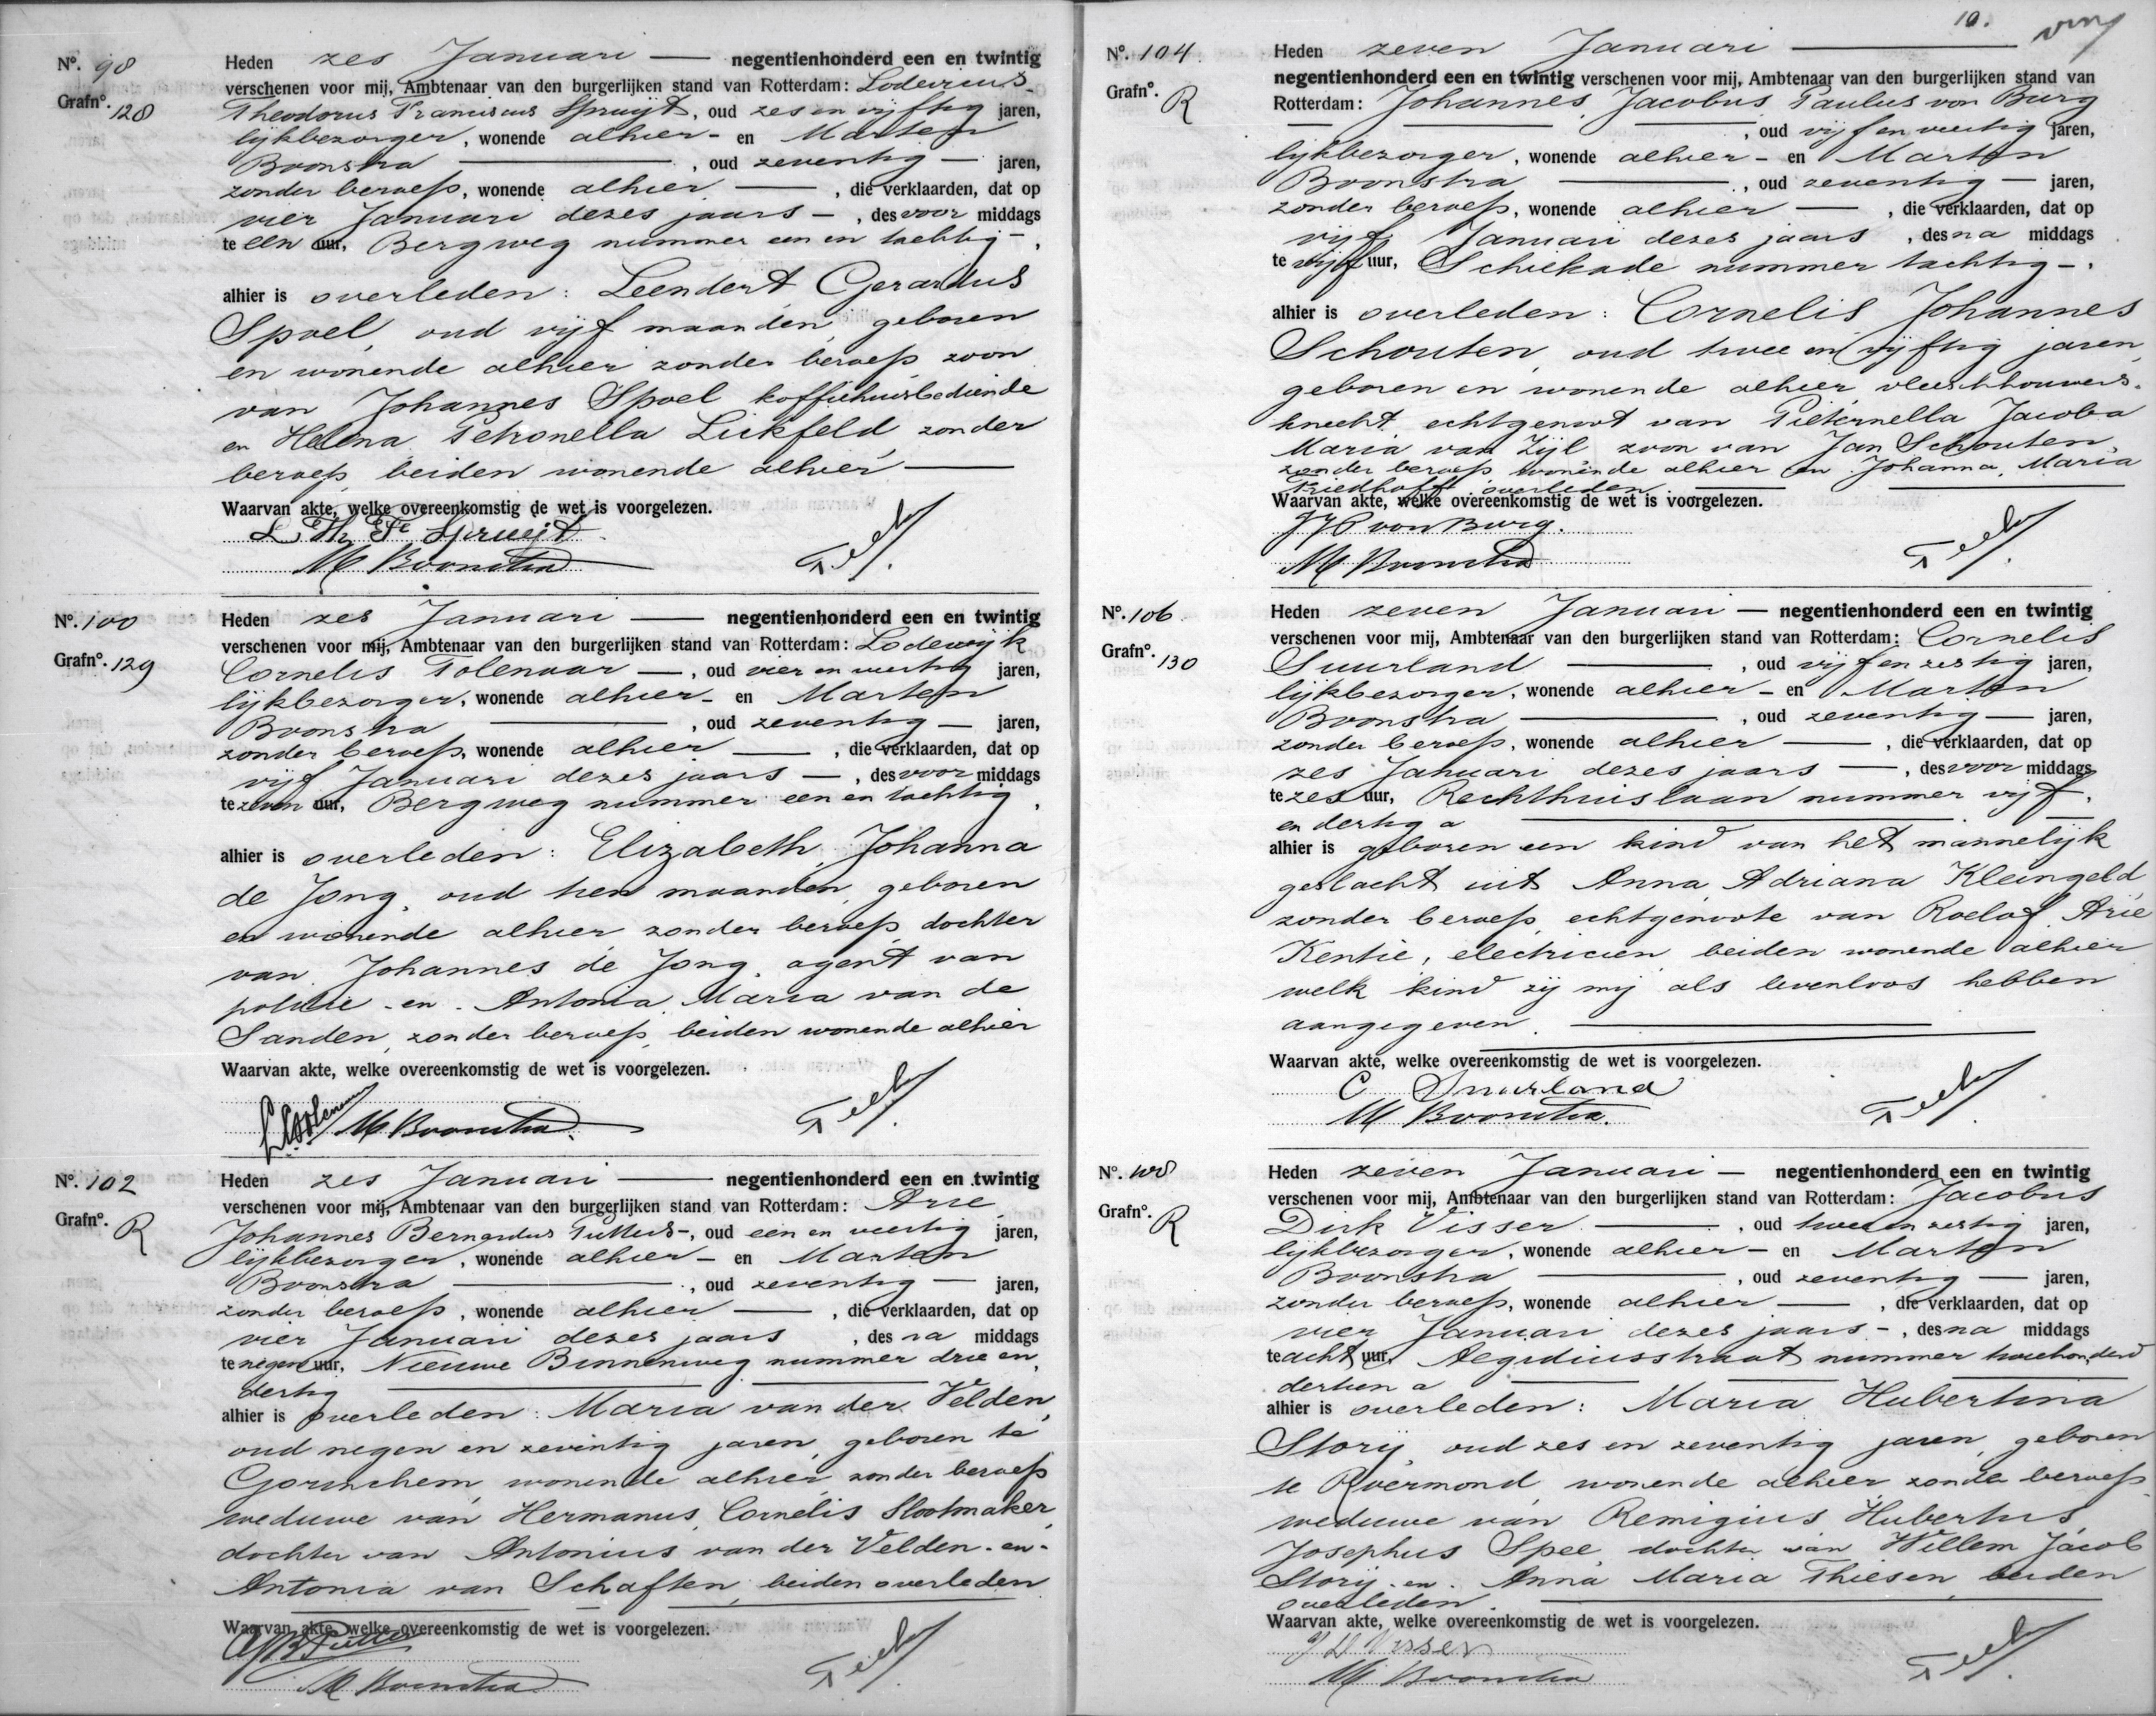 Nº. 98
Grafnº. 128
Heden zes Januari — negentienhonderd een en twintig
verschenen voor mij, Ambtenaar van den burgerlijken stand van Rotterdam: Lodevicus
Theodorus Franciscus Spruijt, oud zes en vijftig jaren,
lijkbezorger, wonende alhier - en Marten
Boonstra —, oud zeventig — jaren,
zonder beroep, wonende alhier —, die verklaarden, dat op
vier Januari dezes jaars —, des voor middags
te een uur, Bergweg nummer een en tachtig —,
alhier is overleden: Leendert Gerardus
Spoel, oud vijf maanden, geboren
en wonende alhier zonder beroep zoon
van Johannes Spoel koffiehuisbediende
en Helena Petronella Lickfeld, zonder
beroep, beiden wonende alhier —
Waarvan akte, welke overeenkomstig de wet is voorgelezen.
L Th Fr Spruijt
M Boonstra
Nº. 100
Grafnº. 129
Heden zes Januari — negentienhonderd een en twintig
verschenen voor mij, Ambtenaar van den burgerlijken stand van Rotterdam: Lodewijk
Cornelis Tolenaar —, oud vier en veertig jaren,
lijkbezorger, wonende alhier - en Marten
Boonstra —, oud zeventig — jaren,
zonder beroep, wonende alhier —, die verklaarden, dat op
vijf Januari dezes jaars —, des voor middags
te zeven uur, Bergweg nummer een en tachtig,
alhier is overleden: Elizabeth Johanna
de Jong, oud tien maanden, geboren
en wonende alhier zonder beroep, dochter
van Johannes de Jong, agent van
politie - en - Antonia Maria van de
Sanden, zonder beroep, beiden wonende alhier
Waarvan akte, welke overeenkomstig de wet is voorgelezen.
M Boonstra
Nº. 102
Grafnº. R
Heden zes Januari — negentienhonderd een en twintig
verschenen voor mij, Ambtenaar van den burgerlijken stand van Rotterdam: Arie
Johannes Bernardus Putters -, oud een en veertig jaren,
lijkbezorger, wonende alhier - en Marten
Boonstra —, oud zeventig — jaren,
zonder beroep, wonende alhier —, die verklaarden, dat op
vier Januari dezes jaars, des na middags
te negen uur, Nieuwe Binnenweg nummer drie en
dertig —
alhier is overleden: Maria van der Velden,
oud negen en zeventig jaren, geboren te
Gorinchem, wonende alhier, zonder beroep
weduwe van Hermanus Cornelis Slootmaker,
dochter van Antonius van der Velden - en -
Antonia van Schaften, beiden overleden
Waarvan akte, welke overeenkomstig de wet is voorgelezen.
M Boonstra
10.
Nº. 104
Grafnº. R
Heden zeven Januari —
negentienhonderd een en twintig verschenen voor mij, Ambtenaar van den burgerlijken stand van
Rotterdam: Johannes Jacobus Paulus von Burg
—, oud vijf en veertig jaren,
lijkbezorger, wonende alhier - en Marten
Boonstra —, oud zeventig — jaren,
zonder beroep, wonende alhier —, die verklaarden, dat op
vijf Januari dezes jaars, des na middags
te vijf uur, Schiekade nummer tachtig —,
alhier is overleden: Cornelis Johannes
Schouten, oud twee en vijftig jaren,
geboren en wonende alhier vleeschhouwers-
knecht, echtgenoot van Pieternella Jacoba
Maria van Zijl, zoon van Jan Schouten,
zonder beroep wonende alhier en Johanna Maria
Friedhoff, overleden. —
Waarvan akte, welke overeenkomstig de wet is voorgelezen.
JJP von Burg.
M Boonstra
Nº. 106
Grafnº. 130
Heden zeven Januari — negentienhonderd een en twintig
verschenen voor mij, Ambtenaar van den burgerlijken stand van Rotterdam: Cornelis
Suurland —, oud vijf en zestig jaren,
lijkbezorger, wonende alhier - en Marten
Boonstra —, oud zeventig — jaren,
zonder beroep, wonende alhier —, die verklaarden, dat op
zes Januari dezes jaars —, des voor middags
te zes uur, Rechthuislaan nummer vijf
en dertig a —
alhier is geboren een kind van het mannelijk
geslacht uit Anna Adriana Kleingeld,
zonder beroep, echtgenoote van Roelof Arie
Kentie, electricien, beiden wonende alhier
welk kind zij mij als levenloos hebben
aangegeven. —
Waarvan akte, welke overeenkomstig de wet is voorgelezen.
C Suurland
M Boonstra
Nº. 108
Grafnº. R
Heden zeven Januari — negentienhonderd een en twintig
verschenen voor mij, Ambtenaar van den burgerlijken stand van Rotterdam: Jacobus
Dirk Visser —, oud twee en zestig jaren,
lijkbezorger, wonende alhier - en Marten
Boonstra —, oud zeventig — jaren,
zonder beroep, wonende alhier —, die verklaarden, dat op
vier Januari dezes jaars -, des na middags
te acht uur, Aegidiusstraat nummer tweehonderd
dertien a —
alhier is overleden: Maria Hubertina
Storij, oud zes en zeventig jaren, geboren
te Roermond, wonende alhier zonder beroep
weduwe van Remigius Hubertus
Josephus Spee, dochter van Willem Jacob
Storij - en - Anna Maria Thiesen, beiden
overleden. —
Waarvan akte, welke overeenkomstig de wet is voorgelezen.
J D Visser
M Boonstra